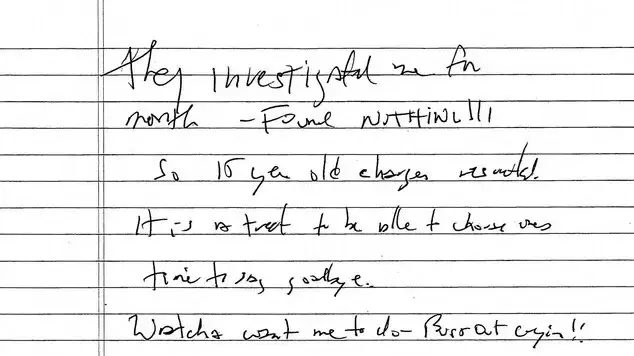 They investigated me for
month - Found NOTHING!!!
So year old charges
It is a treat to be able to choose ones
time to say goodbye.
Watcha want me to do - Burst out cryin!!